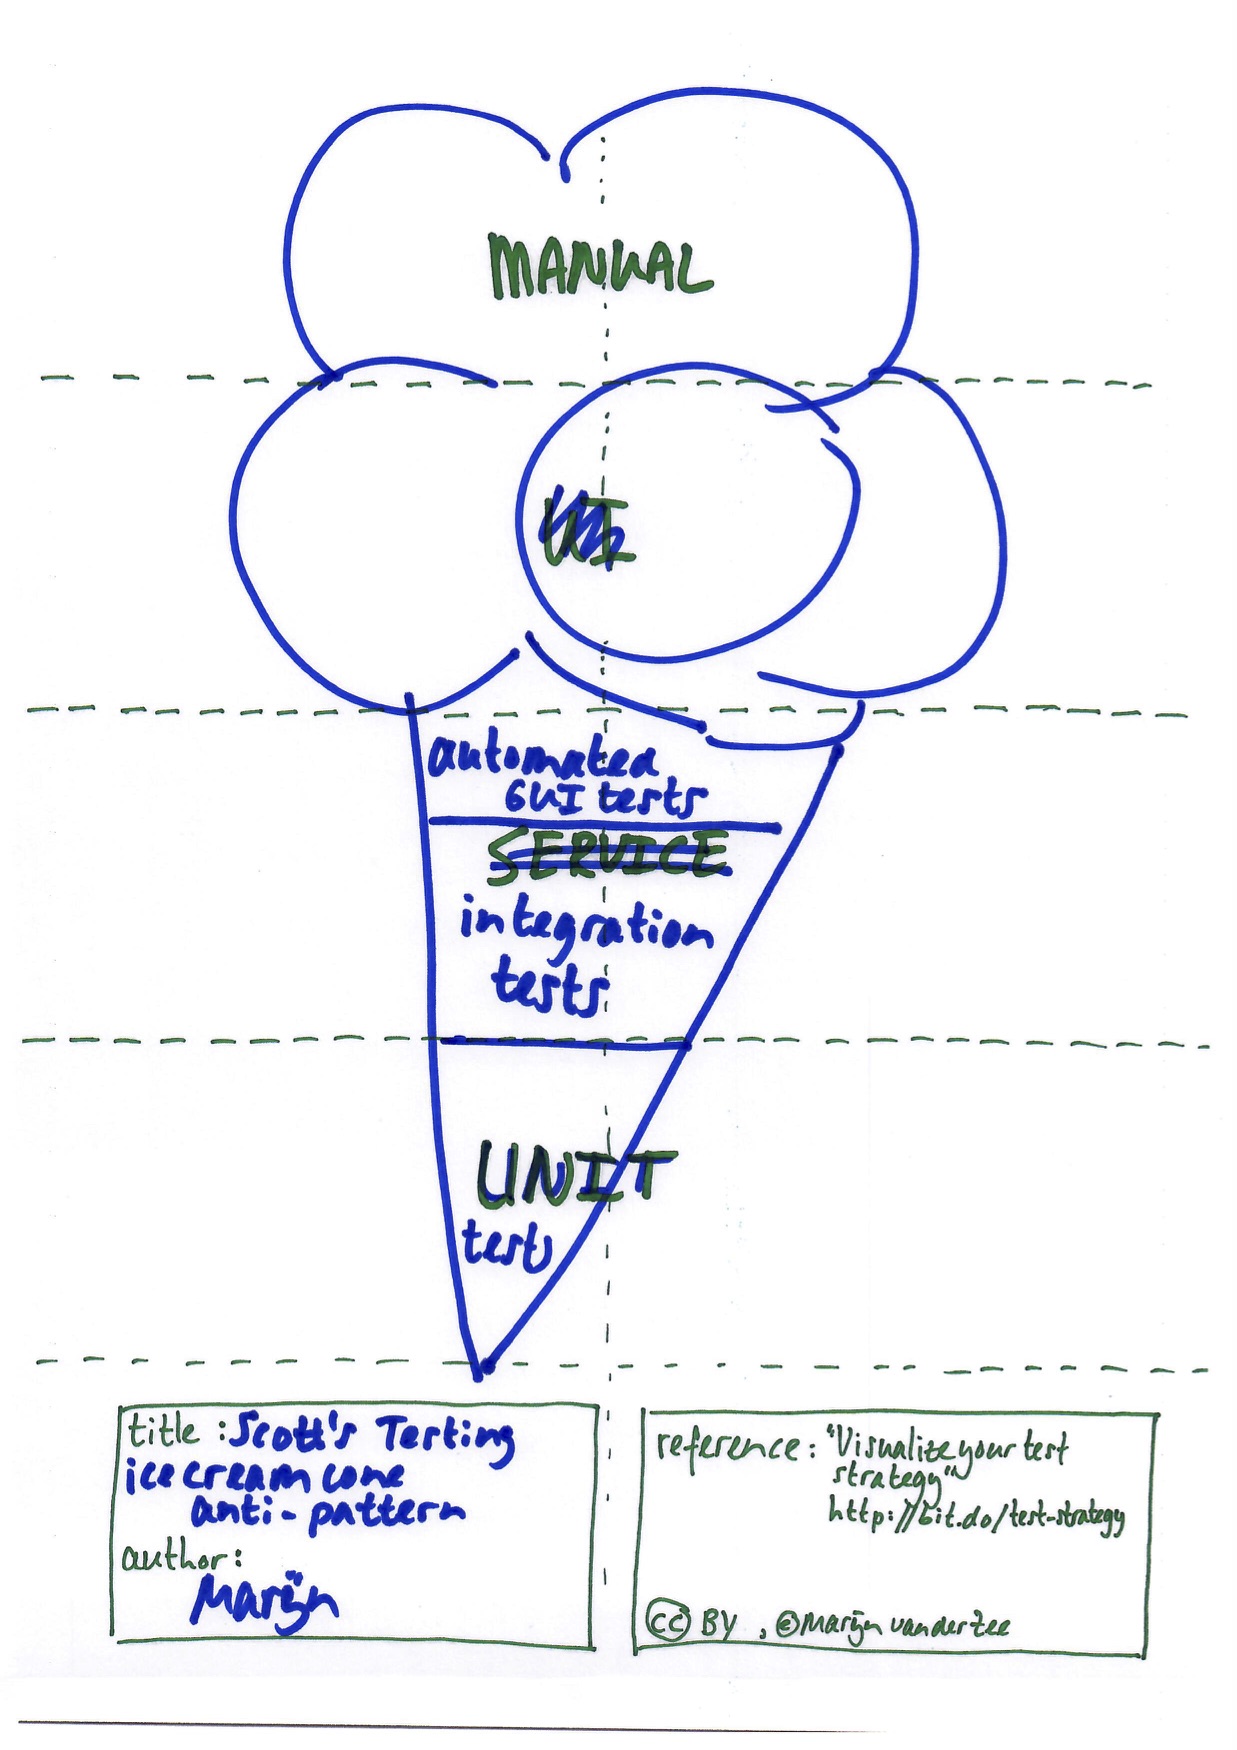 MANUAL
UI
automated
GUI tests
SERVICE
integration
tests
UNIT
tests
title : Scott's Testing
ice cream cone
anti-pattern
author:
Marijn
reference: "Visualize your test
strategy"
http://bit.do/test-strategy
cc BY , © Marijn van der Zee